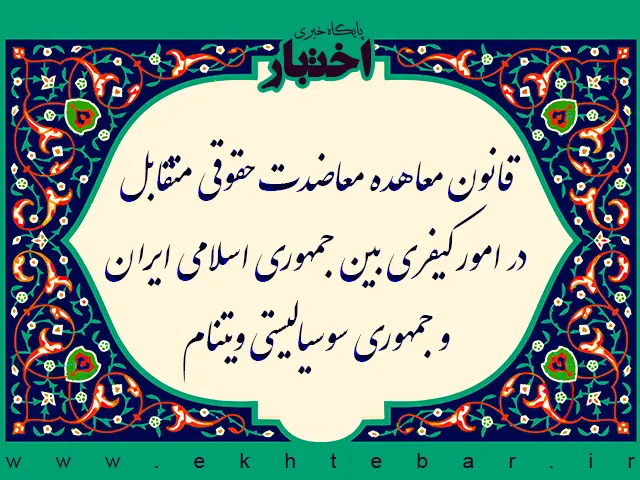 پایگاه خبری
اختبار
قانون معاهده معاضدت حقوقی متقابل
در امور کیفری بین جمهوری اسلامی ایران
و جمهوری سوسیالیستی ویتنام
www.ekhtebar.ir